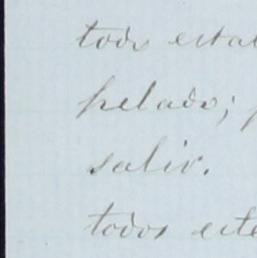 todo esta
helado; p
salir.
todos este